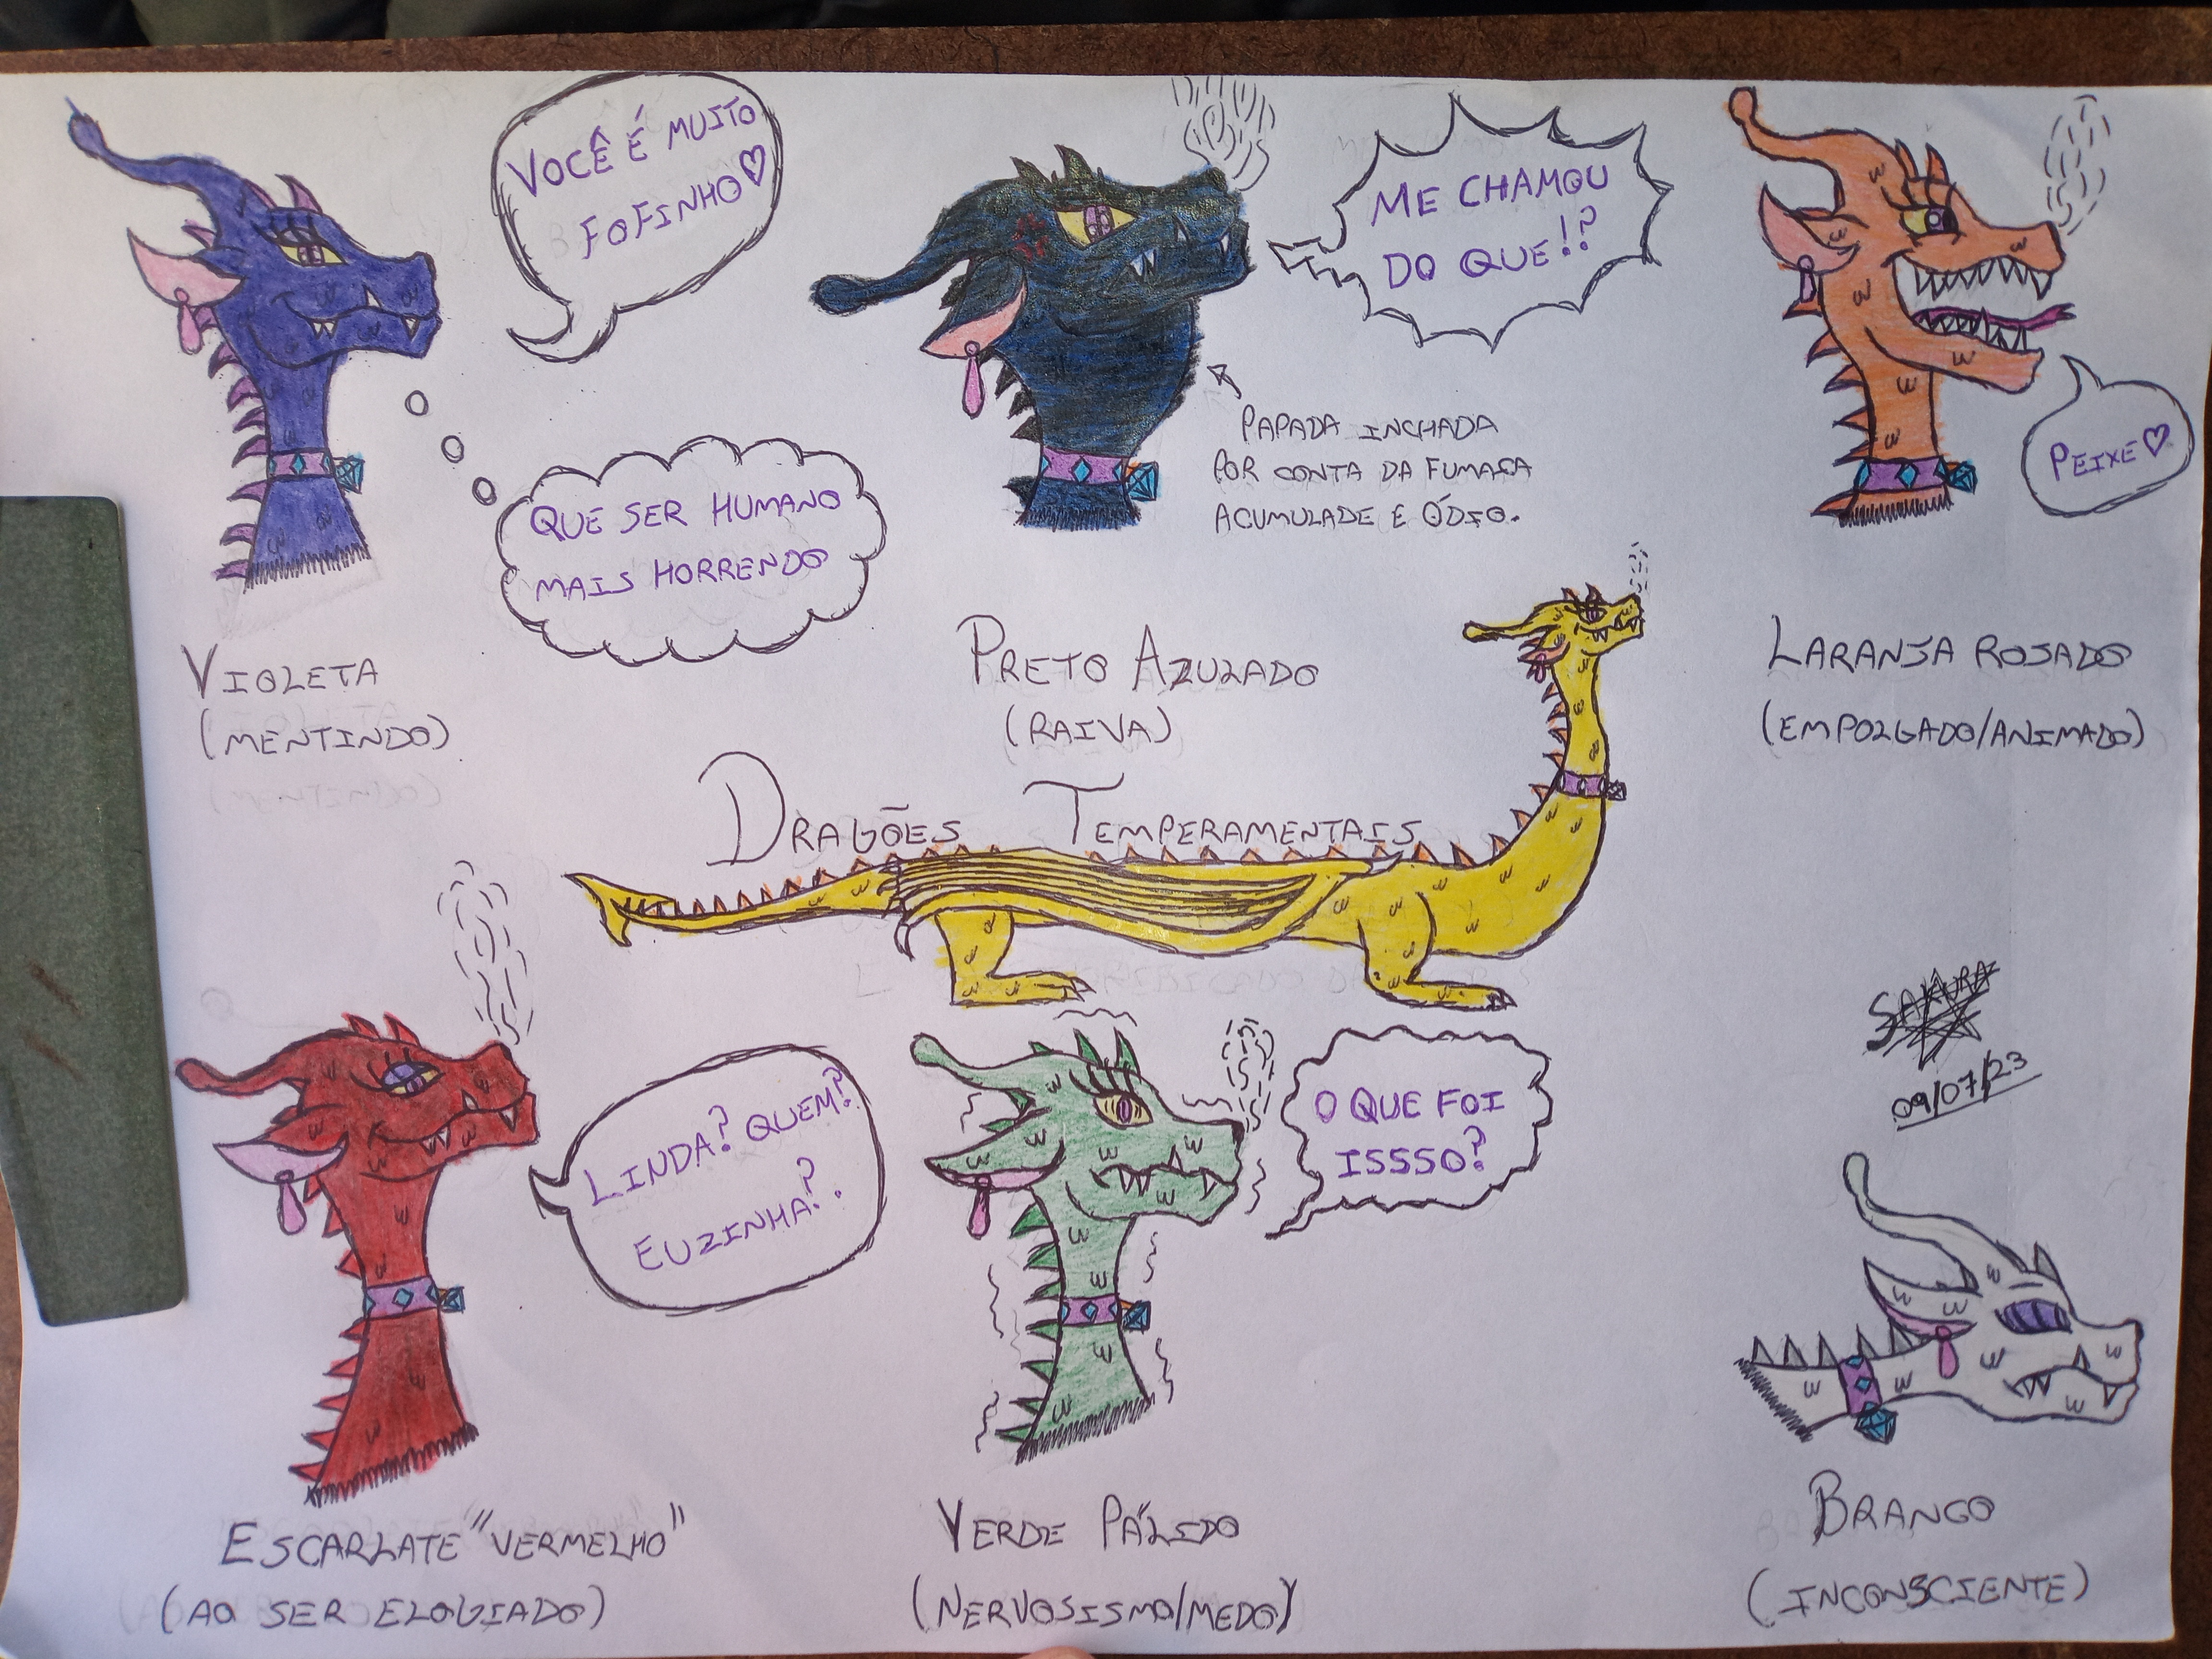 VOCÊ É MUITO
FOFINHO♡
QUE SER HUMANO
MAIS HORRENDO
VIOLETA
(MENTINDO)
ME CHAMOU
DO QUE!?
PAPADA INCHADA
POR CONTA DA FUMAÇA
ACUMULADE E ÓDIO.
PRETO AZULADO
(RAIVA)
PEIXE♡
LARANJA ROSADO
(EMPOLGADO/ANIMADO)
DRAGÕES TEMPERAMENTAIS
SAKURA
09/07/23
LINDA? QUEM?
EUZINHA?.
ESCARLATE "VERMELHO"
(AO SER ELOGIADO)
O QUE FOI
ISSSO?
VERDE PÁLIDO
(NERVOSISMO/MEDO)
BRANCO
(INCONSCIENTE)